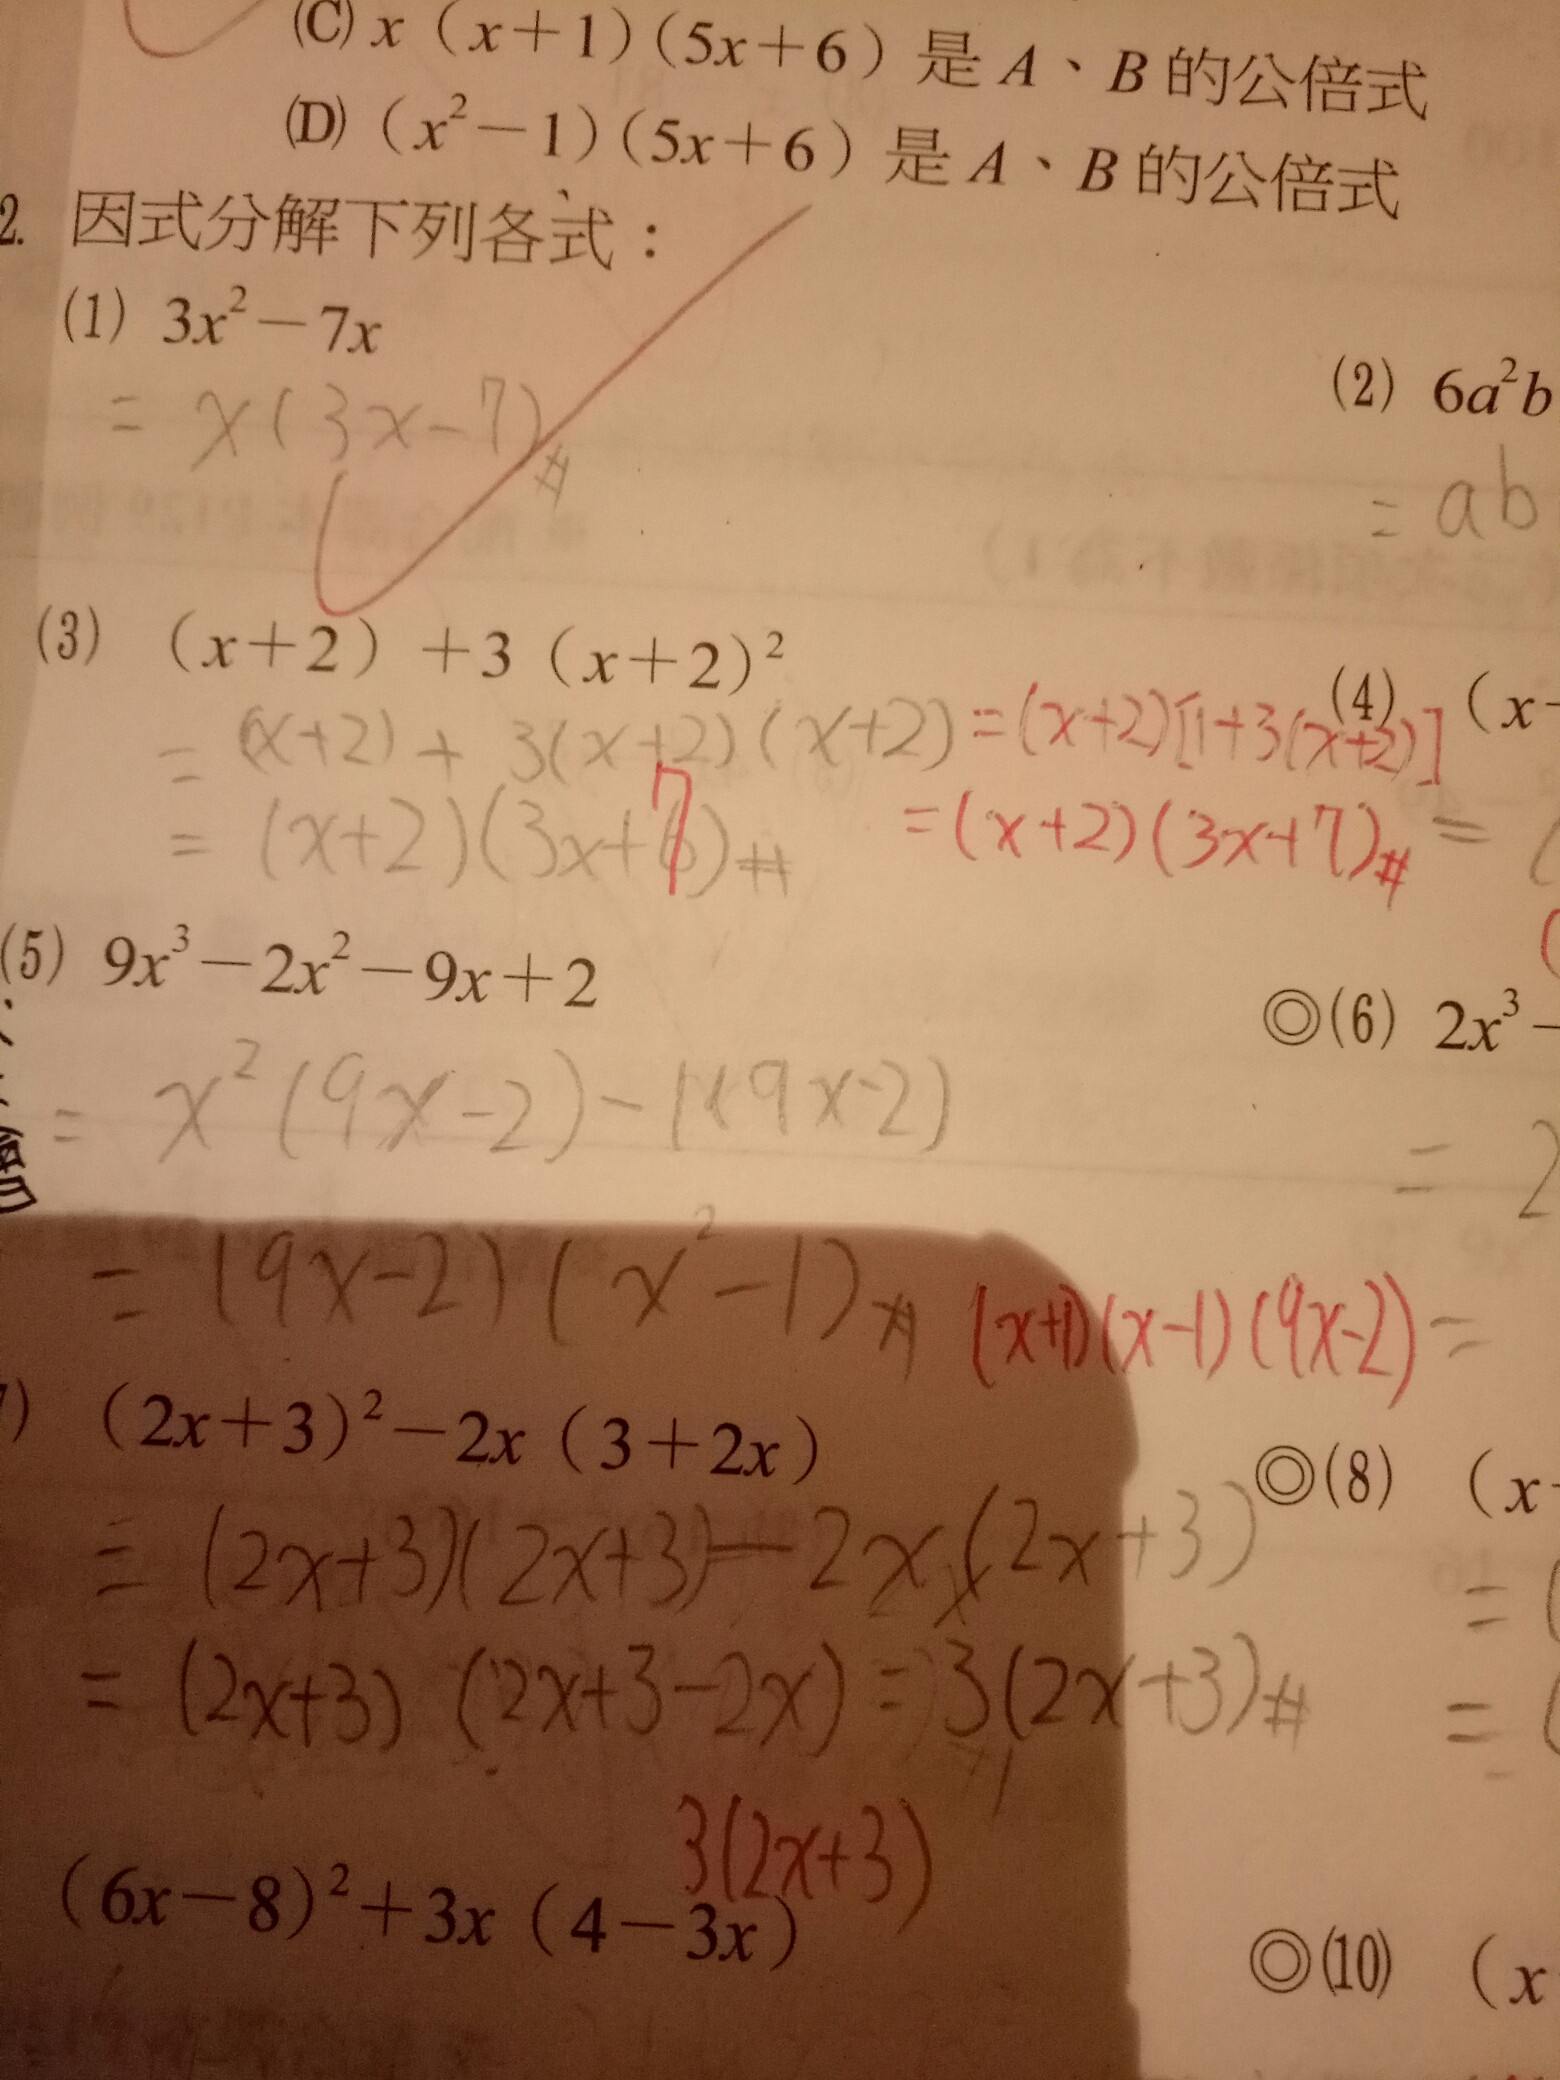 (C) x（x＋1）（5x＋6）是 A、B 的公倍式
(D)（x²－1）（5x＋6）是 A、B 的公倍式
2. 因式分解下列各式：
(1) 3x²－7x
= x(3x-7)#
(2) 6a²b
= ab
(3) （x＋2）＋3（x＋2）²
= (x+2) + 3(x+2)(x+2) = (x+2)[1+3(x+2)]
= (x+2)(3x+7)# = (x+2)(3x+7)#
(4) （x
=
(5) 9x³－2x²－9x＋2
= x²(9x-2)-1(9x-2)
= (9x-2)(x²-1)# (x+1)(x-1)(9x-2)
◎(6) 2x³－
= 2
=
)（2x＋3）²－2x（3＋2x）
= (2x+3)(2x+3)-2x(2x+3)
= (2x+3)(2x+3-2x) = 3(2x+3)#
3(2x+3)
◎(8) （x
= (
= (
（6x－8）²＋3x（4－3x）
◎(10) （x